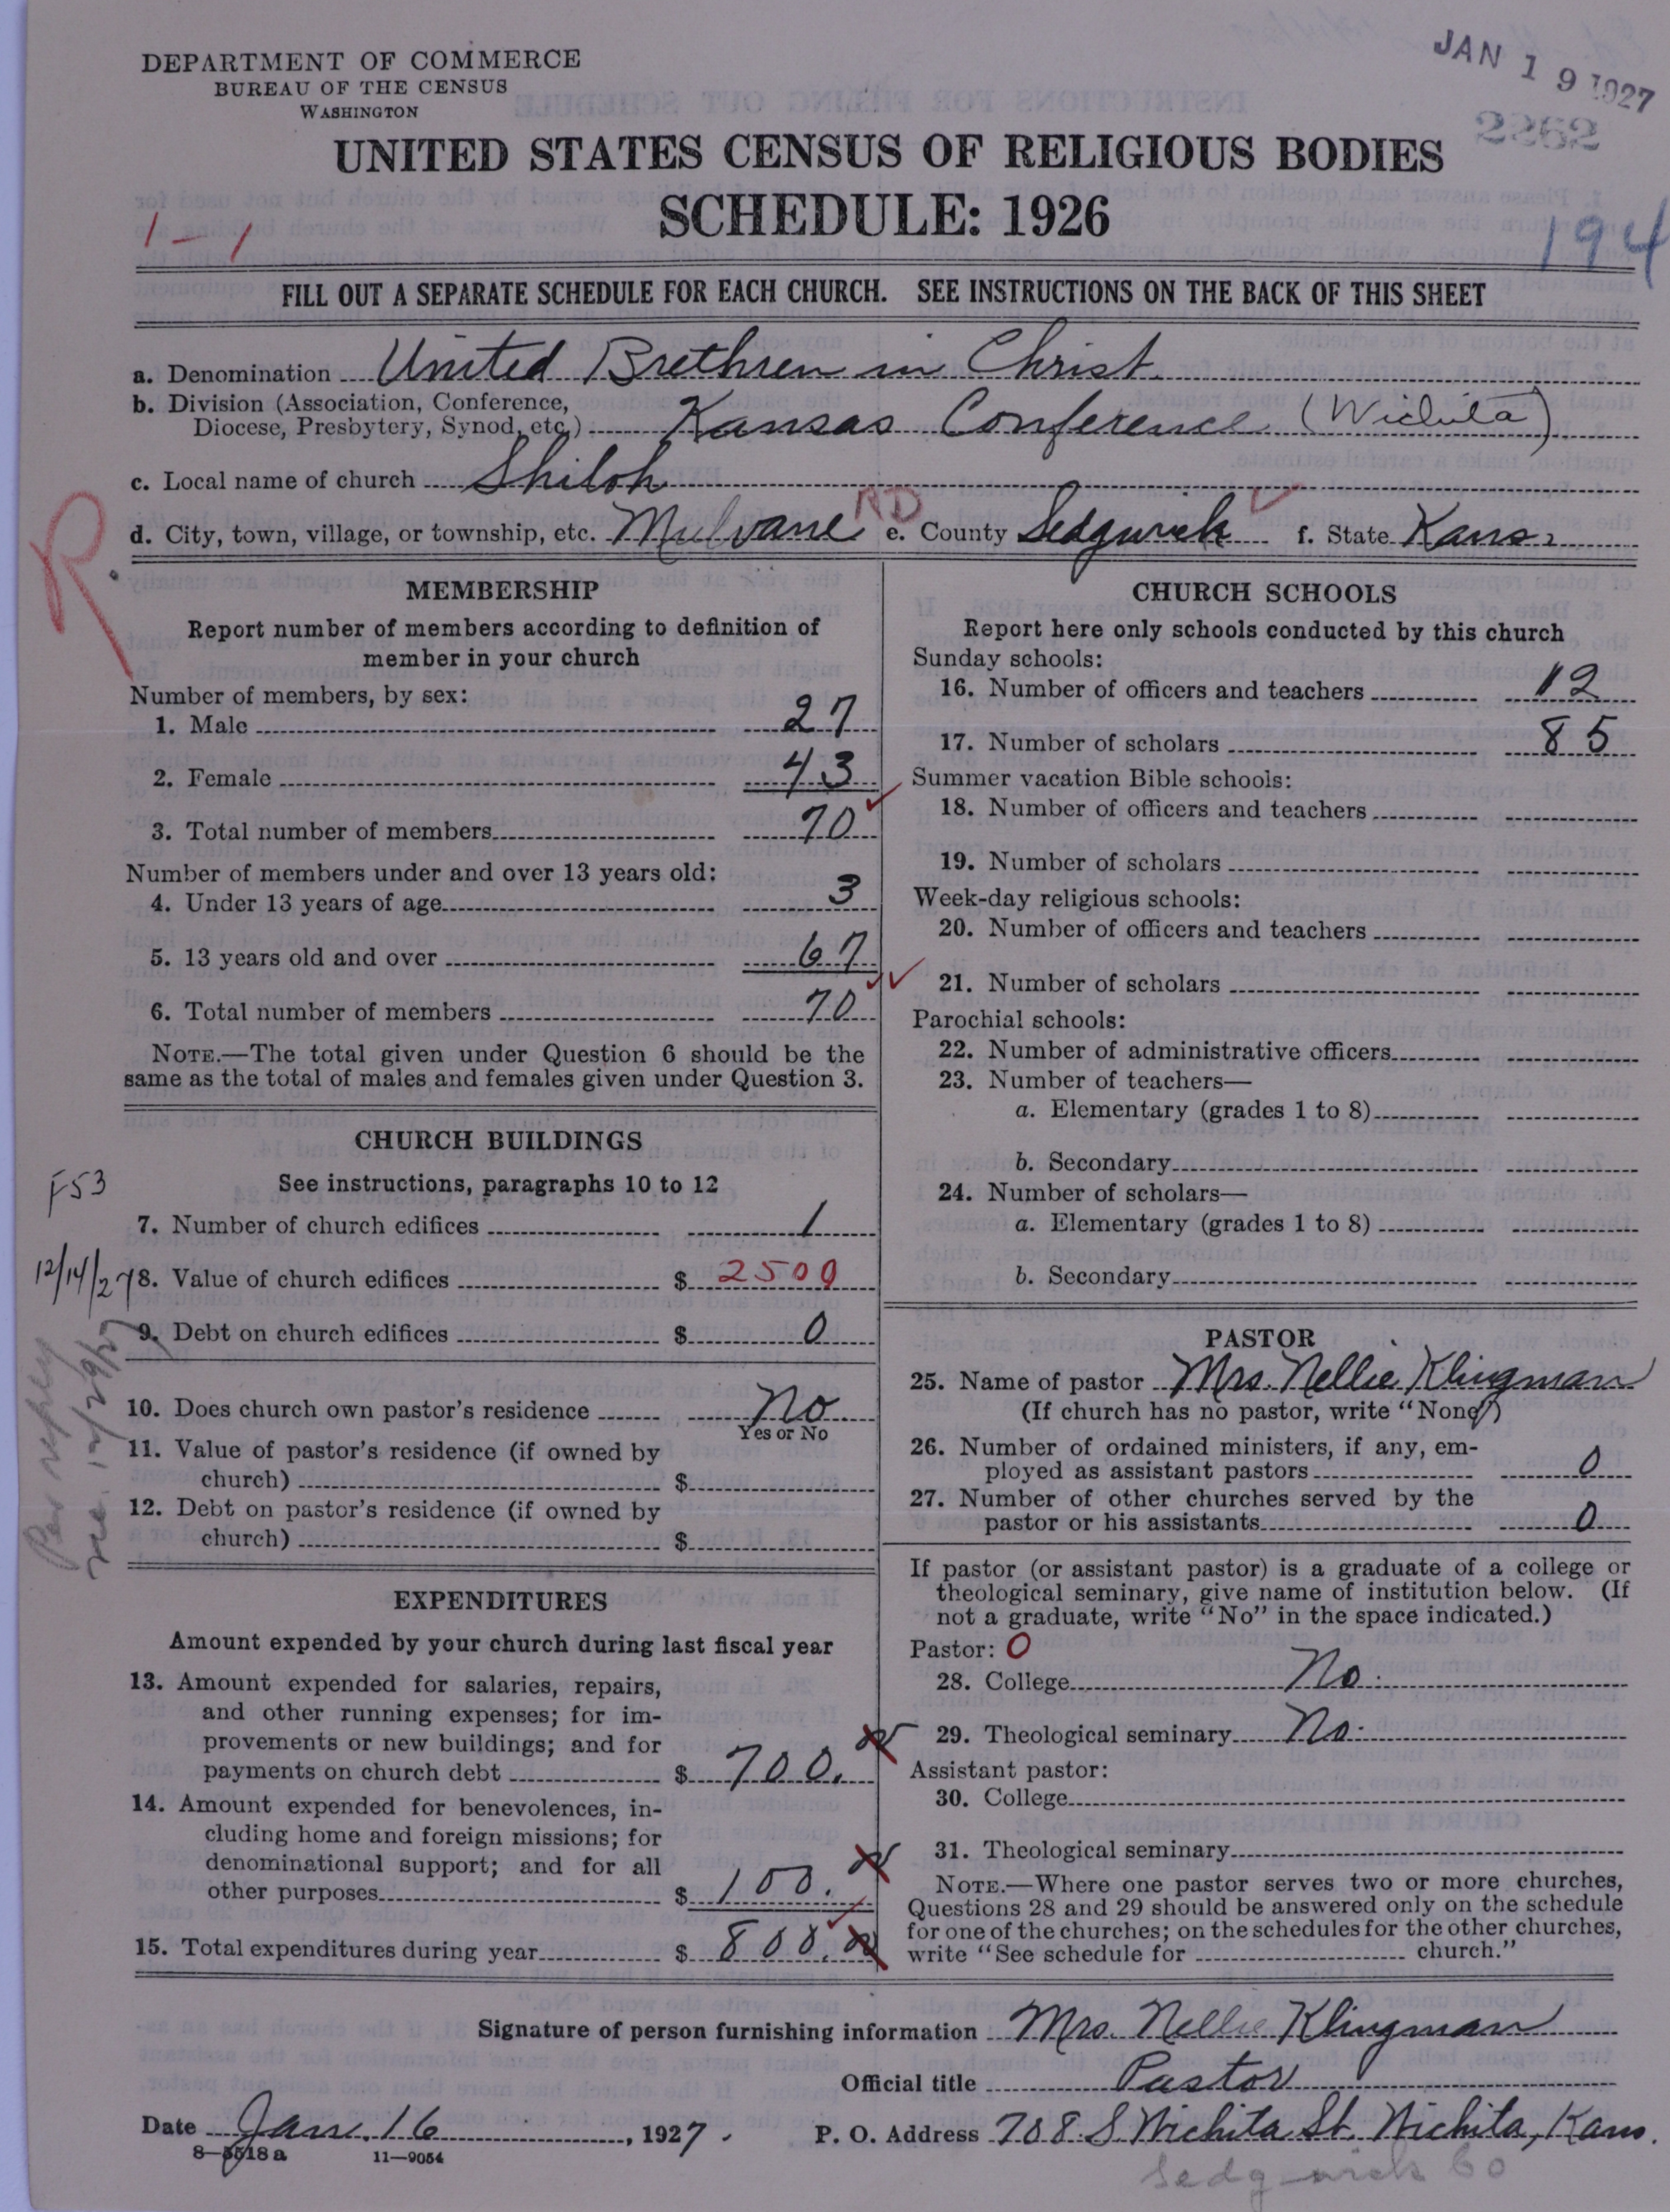 DEPARTMENT OF COMMERCE
BUREAU OF THE CENSUS
WASHINGTON
JAN 19 1927
2262
UNITED STATES CENSUS OF RELIGIOUS BODIES
SCHEDULE: 1926
1-1
194
FILL OUT A SEPARATE SCHEDULE FOR EACH CHURCH. SEE INSTRUCTIONS ON THE BACK OF THIS SHEET
a. Denomination United Brethren in Christ
b. Division (Association, Conference,
Diocese, Presbytery, Synod, etc.) Kansas Conference (Wichita)
c. Local name of church Shiloh
R
d. City, town, village, or township, etc. Mulvane RD e. County Sedgwick f. State Kans.
MEMBERSHIP
Report number of members according to definition of
member in your church
Number of members, by sex:
1. Male 27
2. Female 43
3. Total number of members 70
Number of members under and over 13 years old:
4. Under 13 years of age 3
5. 13 years old and over 67
6. Total number of members 70
NOTE.—The total given under Question 6 should be the
same as the total of males and females given under Question 3.
CHURCH BUILDINGS
See instructions, paragraphs 10 to 12
F53
7. Number of church edifices 1
12/14/27
8. Value of church edifices $ 2500
9. Debt on church edifices $ 0
Per reply
rec. 12/29/27
10. Does church own pastor's residence No
Yes or No
11. Value of pastor's residence (if owned by
church) $
12. Debt on pastor's residence (if owned by
church) $
EXPENDITURES
Amount expended by your church during last fiscal year
13. Amount expended for salaries, repairs,
and other running expenses; for im-
provements or new buildings; and for
payments on church debt $ 700.
14. Amount expended for benevolences, in-
cluding home and foreign missions; for
denominational support; and for all
other purposes $ 100.
15. Total expenditures during year $ 800.
CHURCH SCHOOLS
Report here only schools conducted by this church
Sunday schools:
16. Number of officers and teachers 12
17. Number of scholars 85
Summer vacation Bible schools:
18. Number of officers and teachers
19. Number of scholars
Week-day religious schools:
20. Number of officers and teachers
21. Number of scholars
Parochial schools:
22. Number of administrative officers
23. Number of teachers—
a. Elementary (grades 1 to 8)
b. Secondary
24. Number of scholars—
a. Elementary (grades 1 to 8)
b. Secondary
PASTOR
25. Name of pastor Mrs. Nellie Klingman
(If church has no pastor, write "None")
26. Number of ordained ministers, if any, em-
ployed as assistant pastors 0
27. Number of other churches served by the
pastor or his assistants 0
If pastor (or assistant pastor) is a graduate of a college or
theological seminary, give name of institution below. (If
not a graduate, write "No" in the space indicated.)
Pastor: 0
28. College No.
29. Theological seminary No.
Assistant pastor:
30. College
31. Theological seminary
NOTE.—Where one pastor serves two or more churches,
Questions 28 and 29 should be answered only on the schedule
for one of the churches; on the schedules for the other churches,
write "See schedule for church."
Signature of person furnishing information Mrs. Nellie Klingman
Official title Pastor
Date Jan. 16, 1927. P. O. Address 708 S. Wichita St. Wichita, Kans.
8—5518a 11—9054
Sedgwick Co